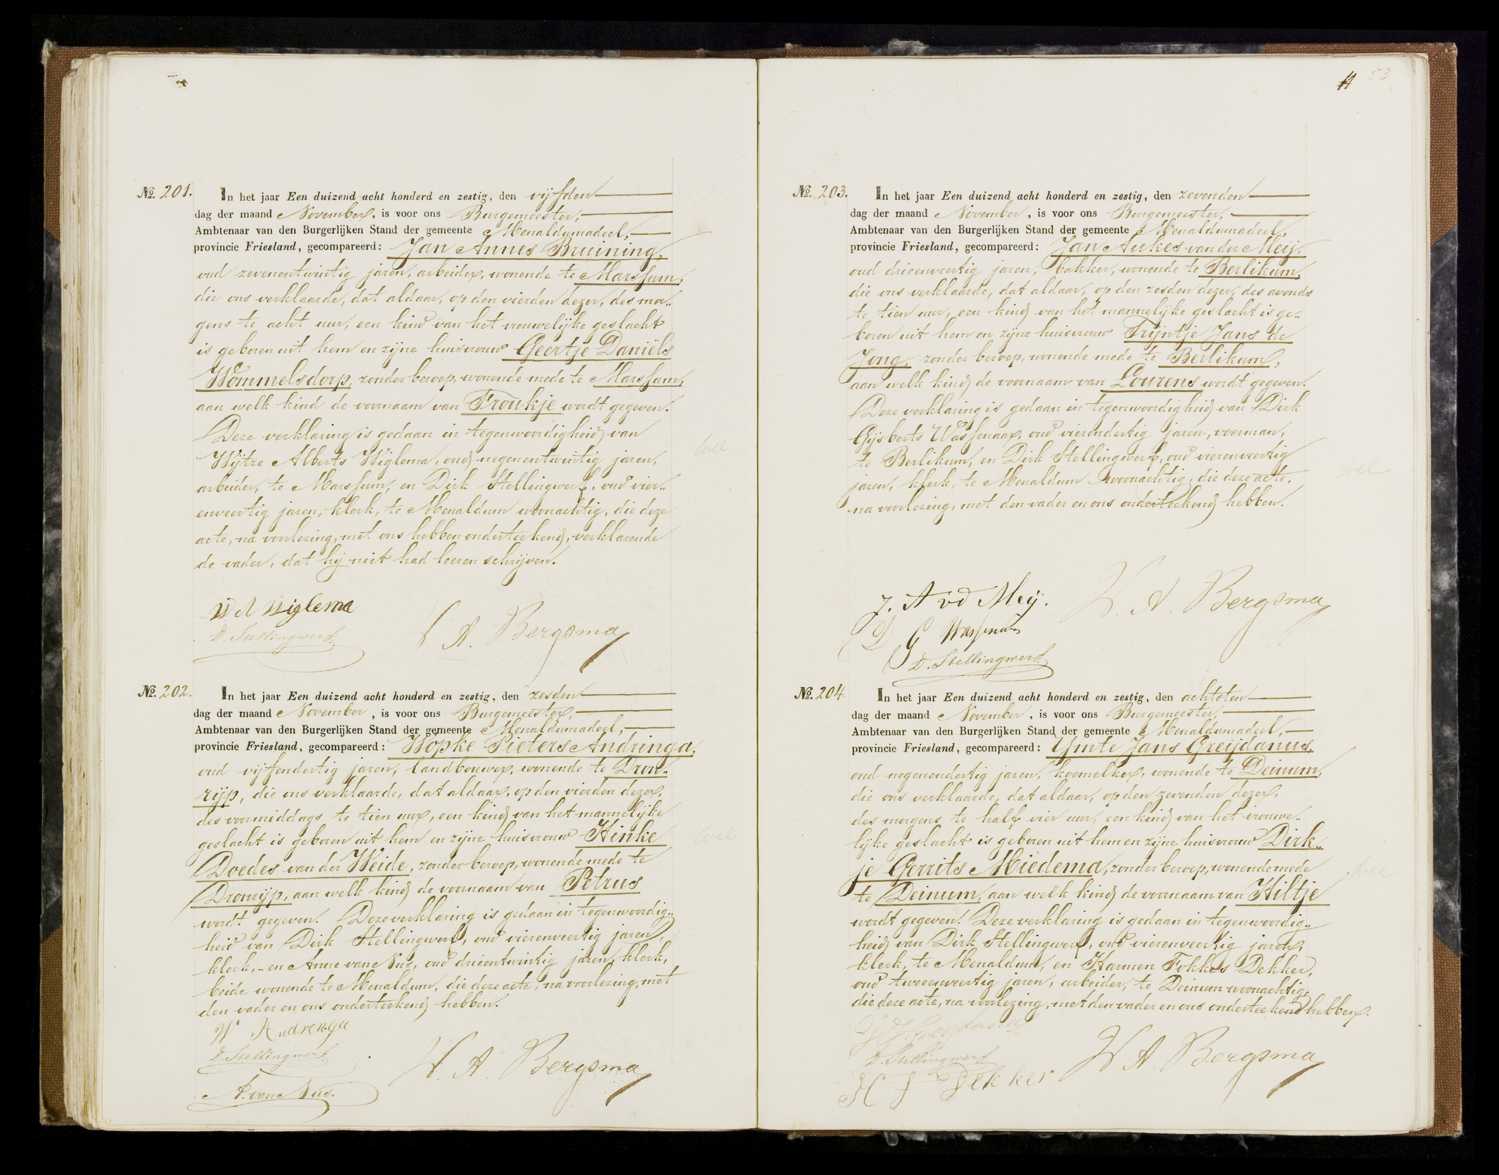 №. 201. In het jaar Een duizend acht honderd en zestig, den vijfden
dag der maand November, is voor ons Burgemeester,
Ambtenaar van den Burgerlijken Stand der gemeente Menaldumadeel,
provincie Friesland, gecompareerd: Jan Annes Bruining,
oud zevenentwintig jaren, arbeider, wonende te Marssum,
die ons verklaarde, dat aldaar, op den vierden dezer, des mor-
gens te acht uur, een kind van het vrouwelijke geslacht
is geboren uit hem en zijne huisvrouw Geertje Daniëls
Wommelsdorp, zonder beroep, wonende mede te Marssum,
aan welk kind de voornaam van Froukje wordt gegeven.
Deze verklaring is gedaan in tegenwoordigheid van
Wijtze Alberts Wiglema, oud negenentwintig jaren,
arbeider, te Marssum, en Dirk Stellingwerf, oud vier-
enveertig jaren, klerk, te Menaldum woonachtig, die deze
acte, na voorlezing, met ons hebben onderteekend, verklarende
de vader, dat hij niet had leeren schrijven.
W A Wiglema
D. Stellingwerf
W. A. Bergsma
№. 202. In het jaar Een duizend acht honderd en zestig, den zesden
dag der maand November, is voor ons Burgemeester,
Ambtenaar van den Burgerlijken Stand der gemeente Menaldumadeel,
provincie Friesland, gecompareerd: Wopke Pieters Andringa,
oud vijfendertig jaren, landbouwer, wonende te Dron-
rijp, die ons verklaarde, dat aldaar, op den vierden dezer,
des voormiddags te tien uur, een kind van het mannelijke
geslacht is geboren uit hem en zijne huisvrouw Hinke
Doedes van der Weide, zonder beroep, wonende mede te
Dronrijp, aan welk kind de voornaam van Petrus
wordt gegeven. Deze verklaring is gedaan in tegenwoordig-
heid van Dirk Stellingwerf, oud vierenveertig jaren,
klerk, en Anne van Nug, oud drieentwintig jaren, klerk,
beide wonende te Menaldum, die deze acte, na voorlezing, met
den vader en ons onderteekend hebben.
W Andringa
D. Stellingwerf
A. van Nug.
W. A. Bergsma
11 53
№. 203. In het jaar Een duizend acht honderd en zestig, den zevenden
dag der maand November, is voor ons Burgemeester,
Ambtenaar van den Burgerlijken Stand der gemeente Menaldumadeel,
provincie Friesland, gecompareerd: Jan Aukes van der Meij,
oud drieenveertig jaren, bakker, wonende te Berlikum,
die ons verklaarde, dat aldaar, op den zesden dezer, des avonds
te tien uur, een kind van het mannelijke geslacht is ge-
boren uit hem en zijne huisvrouw Trijntje Jans de
Jong, zonder beroep, wonende mede te Berlikum,
aan welk kind de voornaam van Lourens wordt gegeven.
Deze verklaring is gedaan in tegenwoordigheid van Dirk
Gijsberts Wassenaar, oud vierendertig jaren, voerman,
te Berlikum, en Dirk Stellingwerf, oud vierenveertig
jaren, klerk, te Menaldum woonachtig, die deze acte,
na voorlezing, met den vader en ons onderteekend hebben.
J. A vd Meij.
D G Wassenaar
D. Stellingwerf
W. A. Bergsma
№. 204 In het jaar Een duizend acht honderd en zestig, den achtsten
dag der maand November, is voor ons Burgemeester,
Ambtenaar van den Burgerlijken Stand der gemeente Menaldumadeel,
provincie Friesland, gecompareerd: Ymte Jans Greijdanus,
oud negenendertig jaren, koemelker, wonende te Deinum,
die ons verklaarde, dat aldaar, op den zevenden dezer,
des morgens te half vier uur, een kind van het vrouwe-
lijke geslacht is geboren uit hem en zijne huisvrouw Dirk-
je Gerrits Miedema, zonder beroep, wonende mede
te Deinum, aan welk kind de voornaam van Hiltje
wordt gegeven. Deze verklaring is gedaan in tegenwoordig-
heid van Dirk Stellingwerf, oud vierenveertig jaren,
klerk, te Menaldum, en Harmen Fokkes Dekker,
oud tweeenveertig jaren, arbeider, te Deinum woonachtig,
die deze acte, na voorlezing, met den vader en ons onderteekend hebben.
D. Stellingwerf
H F Dekker
W A Bergsma